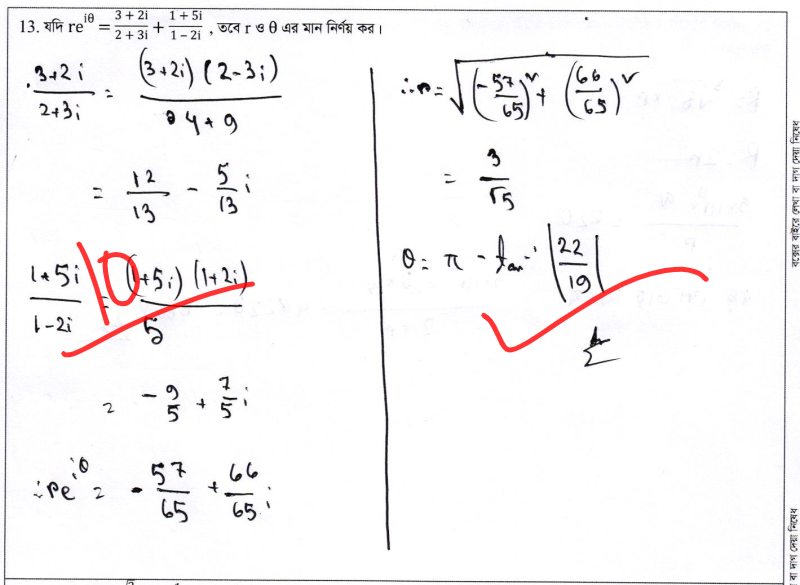 13. যদি re^{iθ} = \frac{3+2i}{2+3i} + \frac{1+5i}{1-2i} , তবে r ও θ এর মান নির্ণয় কর।
\frac{3+2i}{2+3i} = \frac{(3+2i)(2-3i)}{4+9}
= \frac{12}{13} - \frac{5}{13}i
\frac{1+5i}{1-2i} = \frac{(1+5i)(1+2i)}{5}
10
= -\frac{9}{5} + \frac{7}{5}i
∴ re^{iθ} = -\frac{57}{65} + \frac{66}{65}i
∴ r = \sqrt{(-\frac{57}{65})^2 + (\frac{66}{65})^2}
= \frac{3}{\sqrt{5}}
θ = π - tan^{-1} |\frac{22}{19}|
বক্সের বাইরে লেখা বা দাগ দেয়া নিষেধ
বা দাগ দেয়া নিষেধ